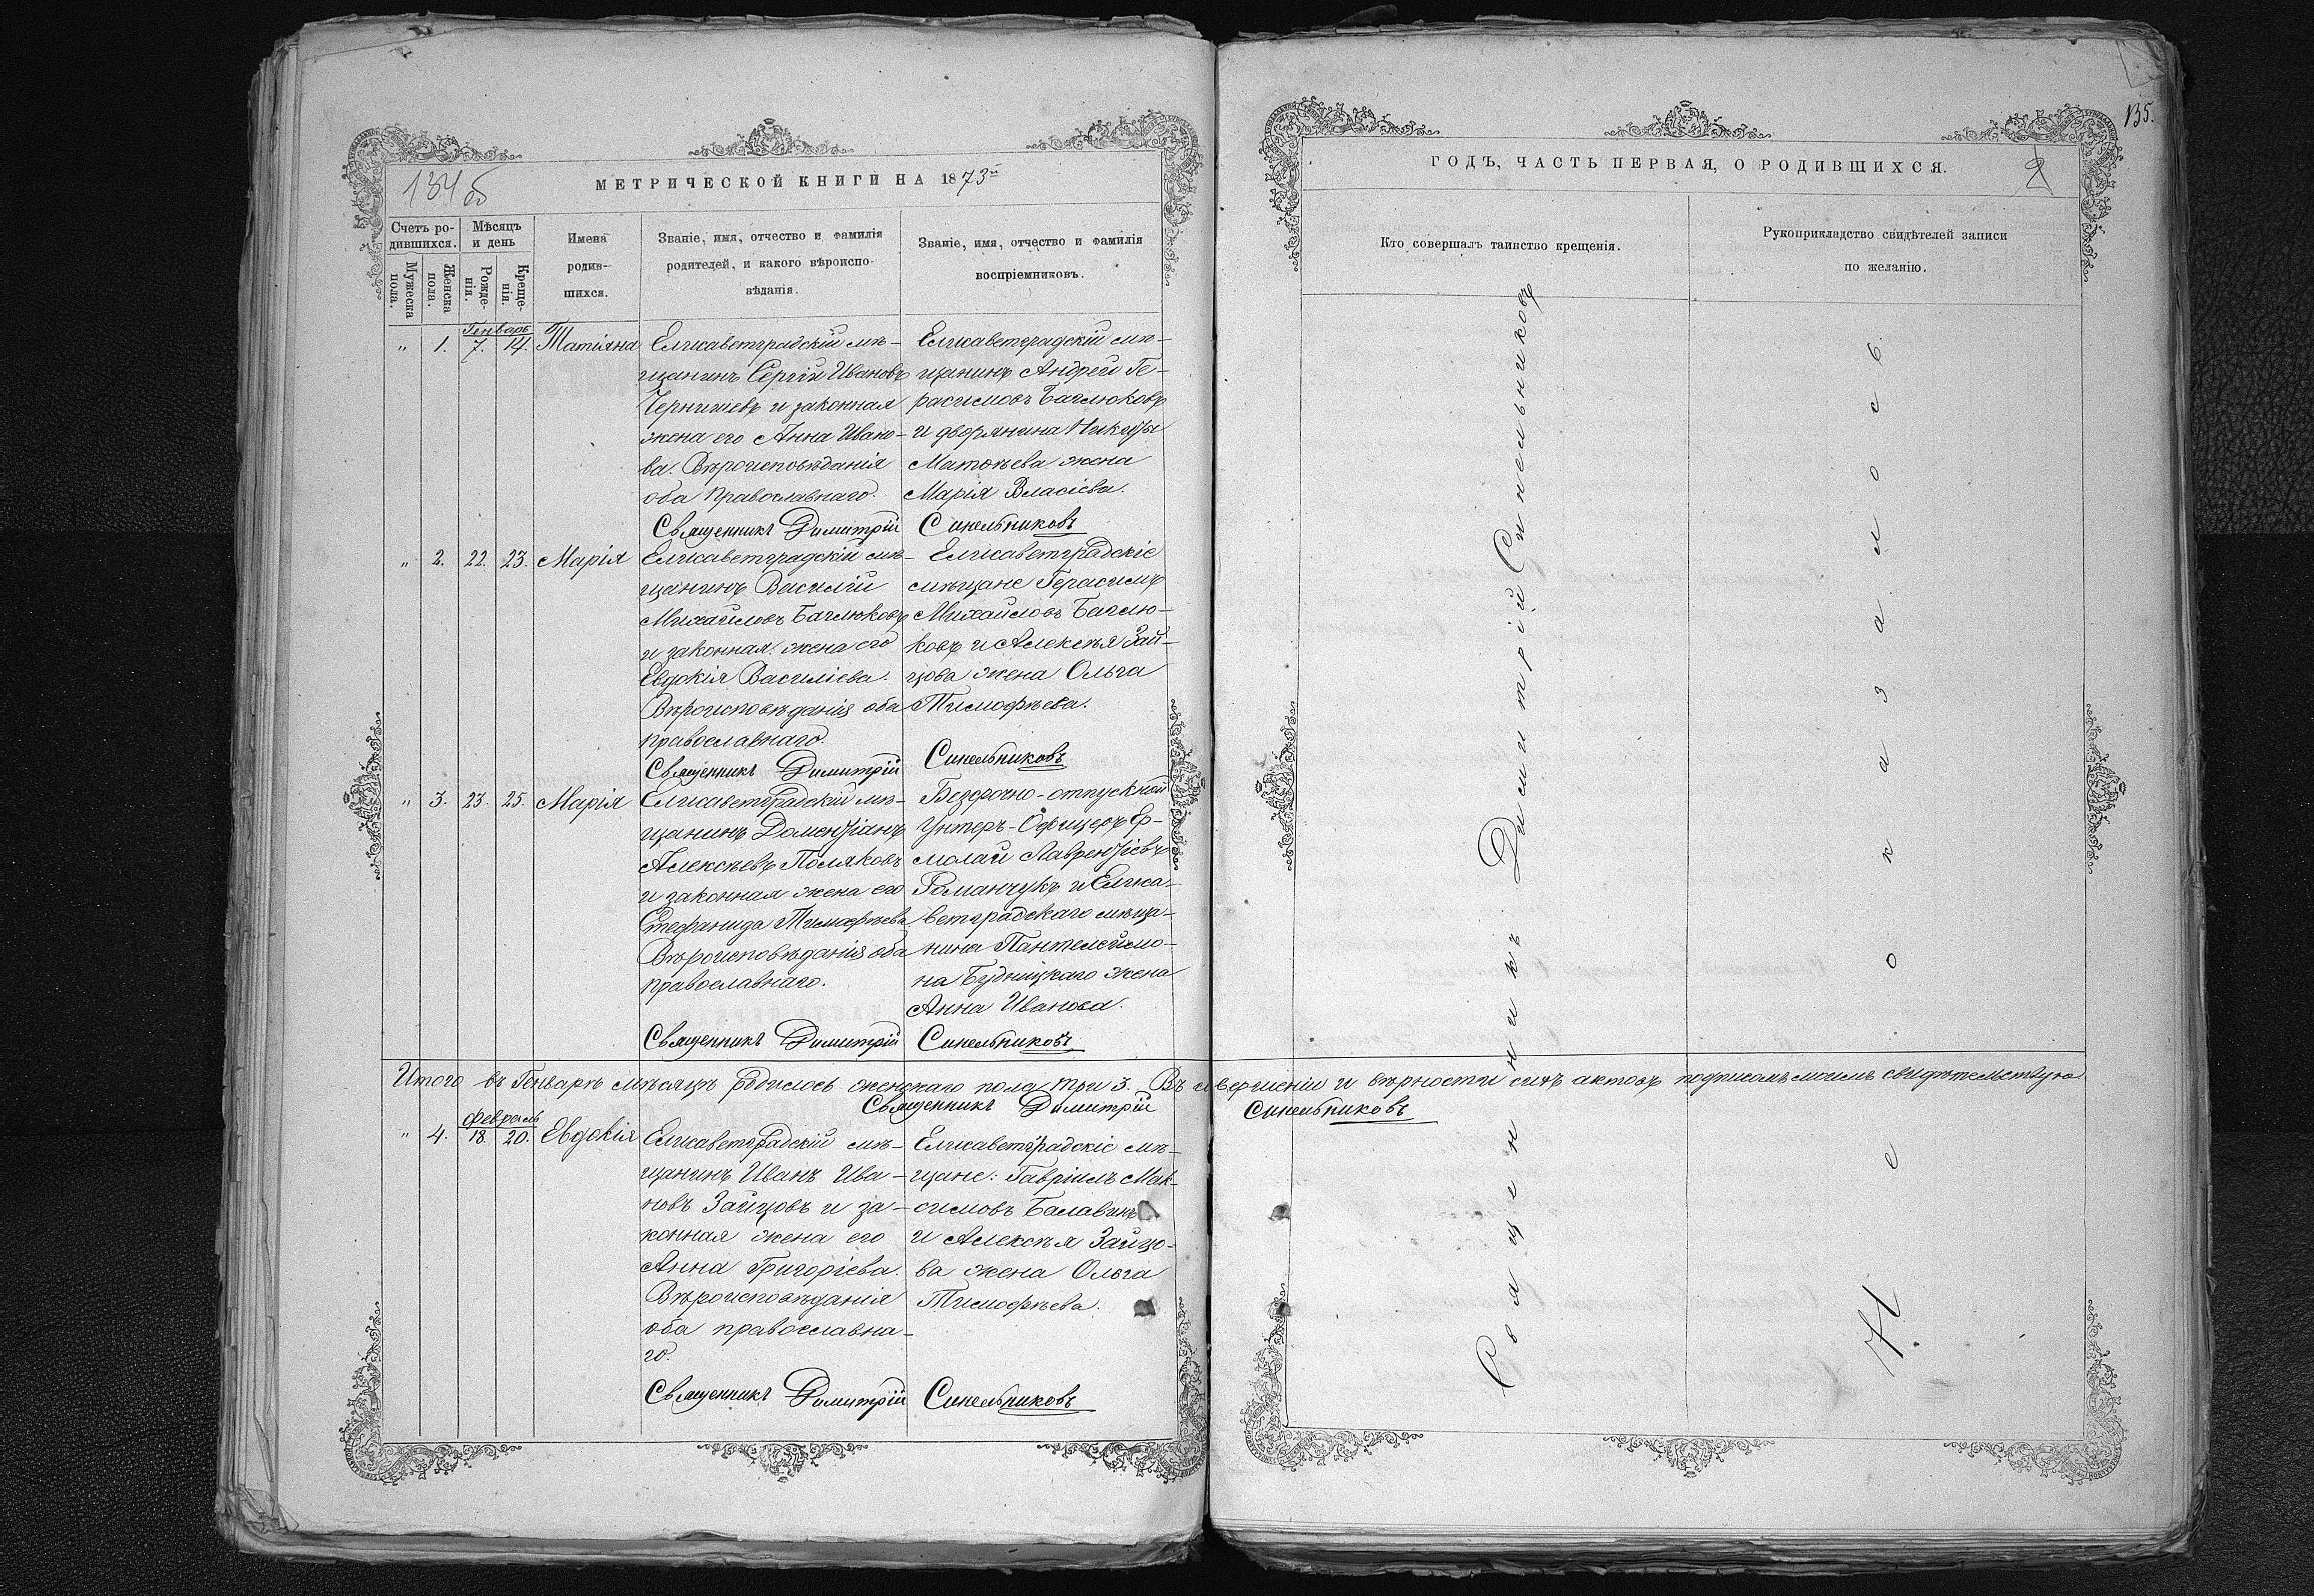 134 об
МЕТРИЧЕСКОЙ КНИГИ НА 1873й
Счетъ ро-
дившихся.
Мужеска
пола.
Женска
пола.
Мѣсяцъ
и день
Рожде-
нія.
Креще-
нія.
Имена
родив-
шихся.
Званіе, имя, отчество и фамилія
родителей, и какого вѣроиспо-
вѣданія.
Званіе, имя, отчество и фамилія
воспріемниковъ.
Генварь
" 1. 7. 14. Татіяна
Елисаветградскій мѣ-
щанинъ Сергій Ивановъ
Чернишевъ и законная
жена его Анна Ивано-
ва. Вѣроисповѣданія
оба православнаго.
Елисаветградскій мѣ-
щанинъ Андрей Ге-
расимовъ Баглюковъ
и дворянина Никиты
Матвѣева жена
Марія Власіева.
Священникъ Димитрій Синельниковъ
" 2. 22. 23. Марія
Елисаветградскій мѣ-
щанинъ Василій
Михайловъ Баглюковъ
и законная жена его
Евдокія Василіева.
Вѣроисповѣданія оба
православнаго.
Елисаветградскіе
мѣщане Герасимъ
Михайловъ Баглю-
ковъ и Алексѣя Зай-
цова жена Ольга
Тимофѣева.
Священникъ Димитрій Синельниковъ
" 3. 23. 25. Марія
Елисаветградскій мѣ-
щанинъ Доментіанъ
Алексѣевъ Поляковъ
и законная жена его
Стефанида Тимофѣева
Вѣроисповѣданія оба
православнаго.
Безсрочно-отпускной
Унтеръ-Офицеръ Ер-
молай Лаврентіевъ
Романчукъ и Елиса-
ветградскаго мѣща-
нина Пантелеймо-
на Будницкаго жена
Анна Иванова.
Священникъ Димитрій Синельниковъ
Итого въ Генварѣ мѣсяцѣ родилось женскаго пола три 3. Въ совершеніи и вѣрности сихъ актовъ подписомъ моимъ свидѣтельствую
Священникъ Димитрій Синельниковъ
февраль
" 4. 18. 20. Евдокія
Елисаветградскій мѣ-
щанинъ Иванъ Ива-
новъ Зайцовъ и за-
конная жена его
Анна Григоріева.
Вѣроисповѣданія
оба православна-
го.
Елисаветградскіе мѣ-
щане: Гавріилъ Мак-
симовъ Балавинъ
и Алексѣя Зайцо-
ва жена Ольга
Тимофѣева.
Священникъ Димитрій Синельниковъ
135.
ГОДЪ, ЧАСТЬ ПЕРВАЯ, О РОДИВШИХСЯ.
2
Кто совершалъ таинство крещенія.
Рукоприкладство свидѣтелей записи
по желанію.
Священникъ Димитрій Синельниковъ
Не оказалось